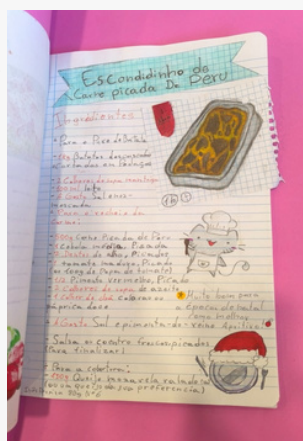 Escondidinho de
Carne picada De Peru
Ingredientes
• Para o Pure de Batata
Batatas descascadas
Cortadas em pedaços
2 Colheres de sopa manteiga
leite
Q Gosto Sal e noz-
moscada
• Para o recheio de
Carne:
500g Carne Picada de Peru
1 Cebola média Picada
Dentes de alho, Picados
tomate maduro, Picado
ou 100g de Polpa de tomate)
1/2 Pimento vermelho, Picado
2 Colheres de sopa de azeite
1 colher de chá colorau ou
páprica doce
A Gosto Sal e pimenta-do-reino
Salsa ou coentro frescos picados
(Para finalizar)
Para a cobertura:
Queijo mozzarela ralado
(ou um queijo da sua preferencia)
1h
Muito bom para
a epoca de natal